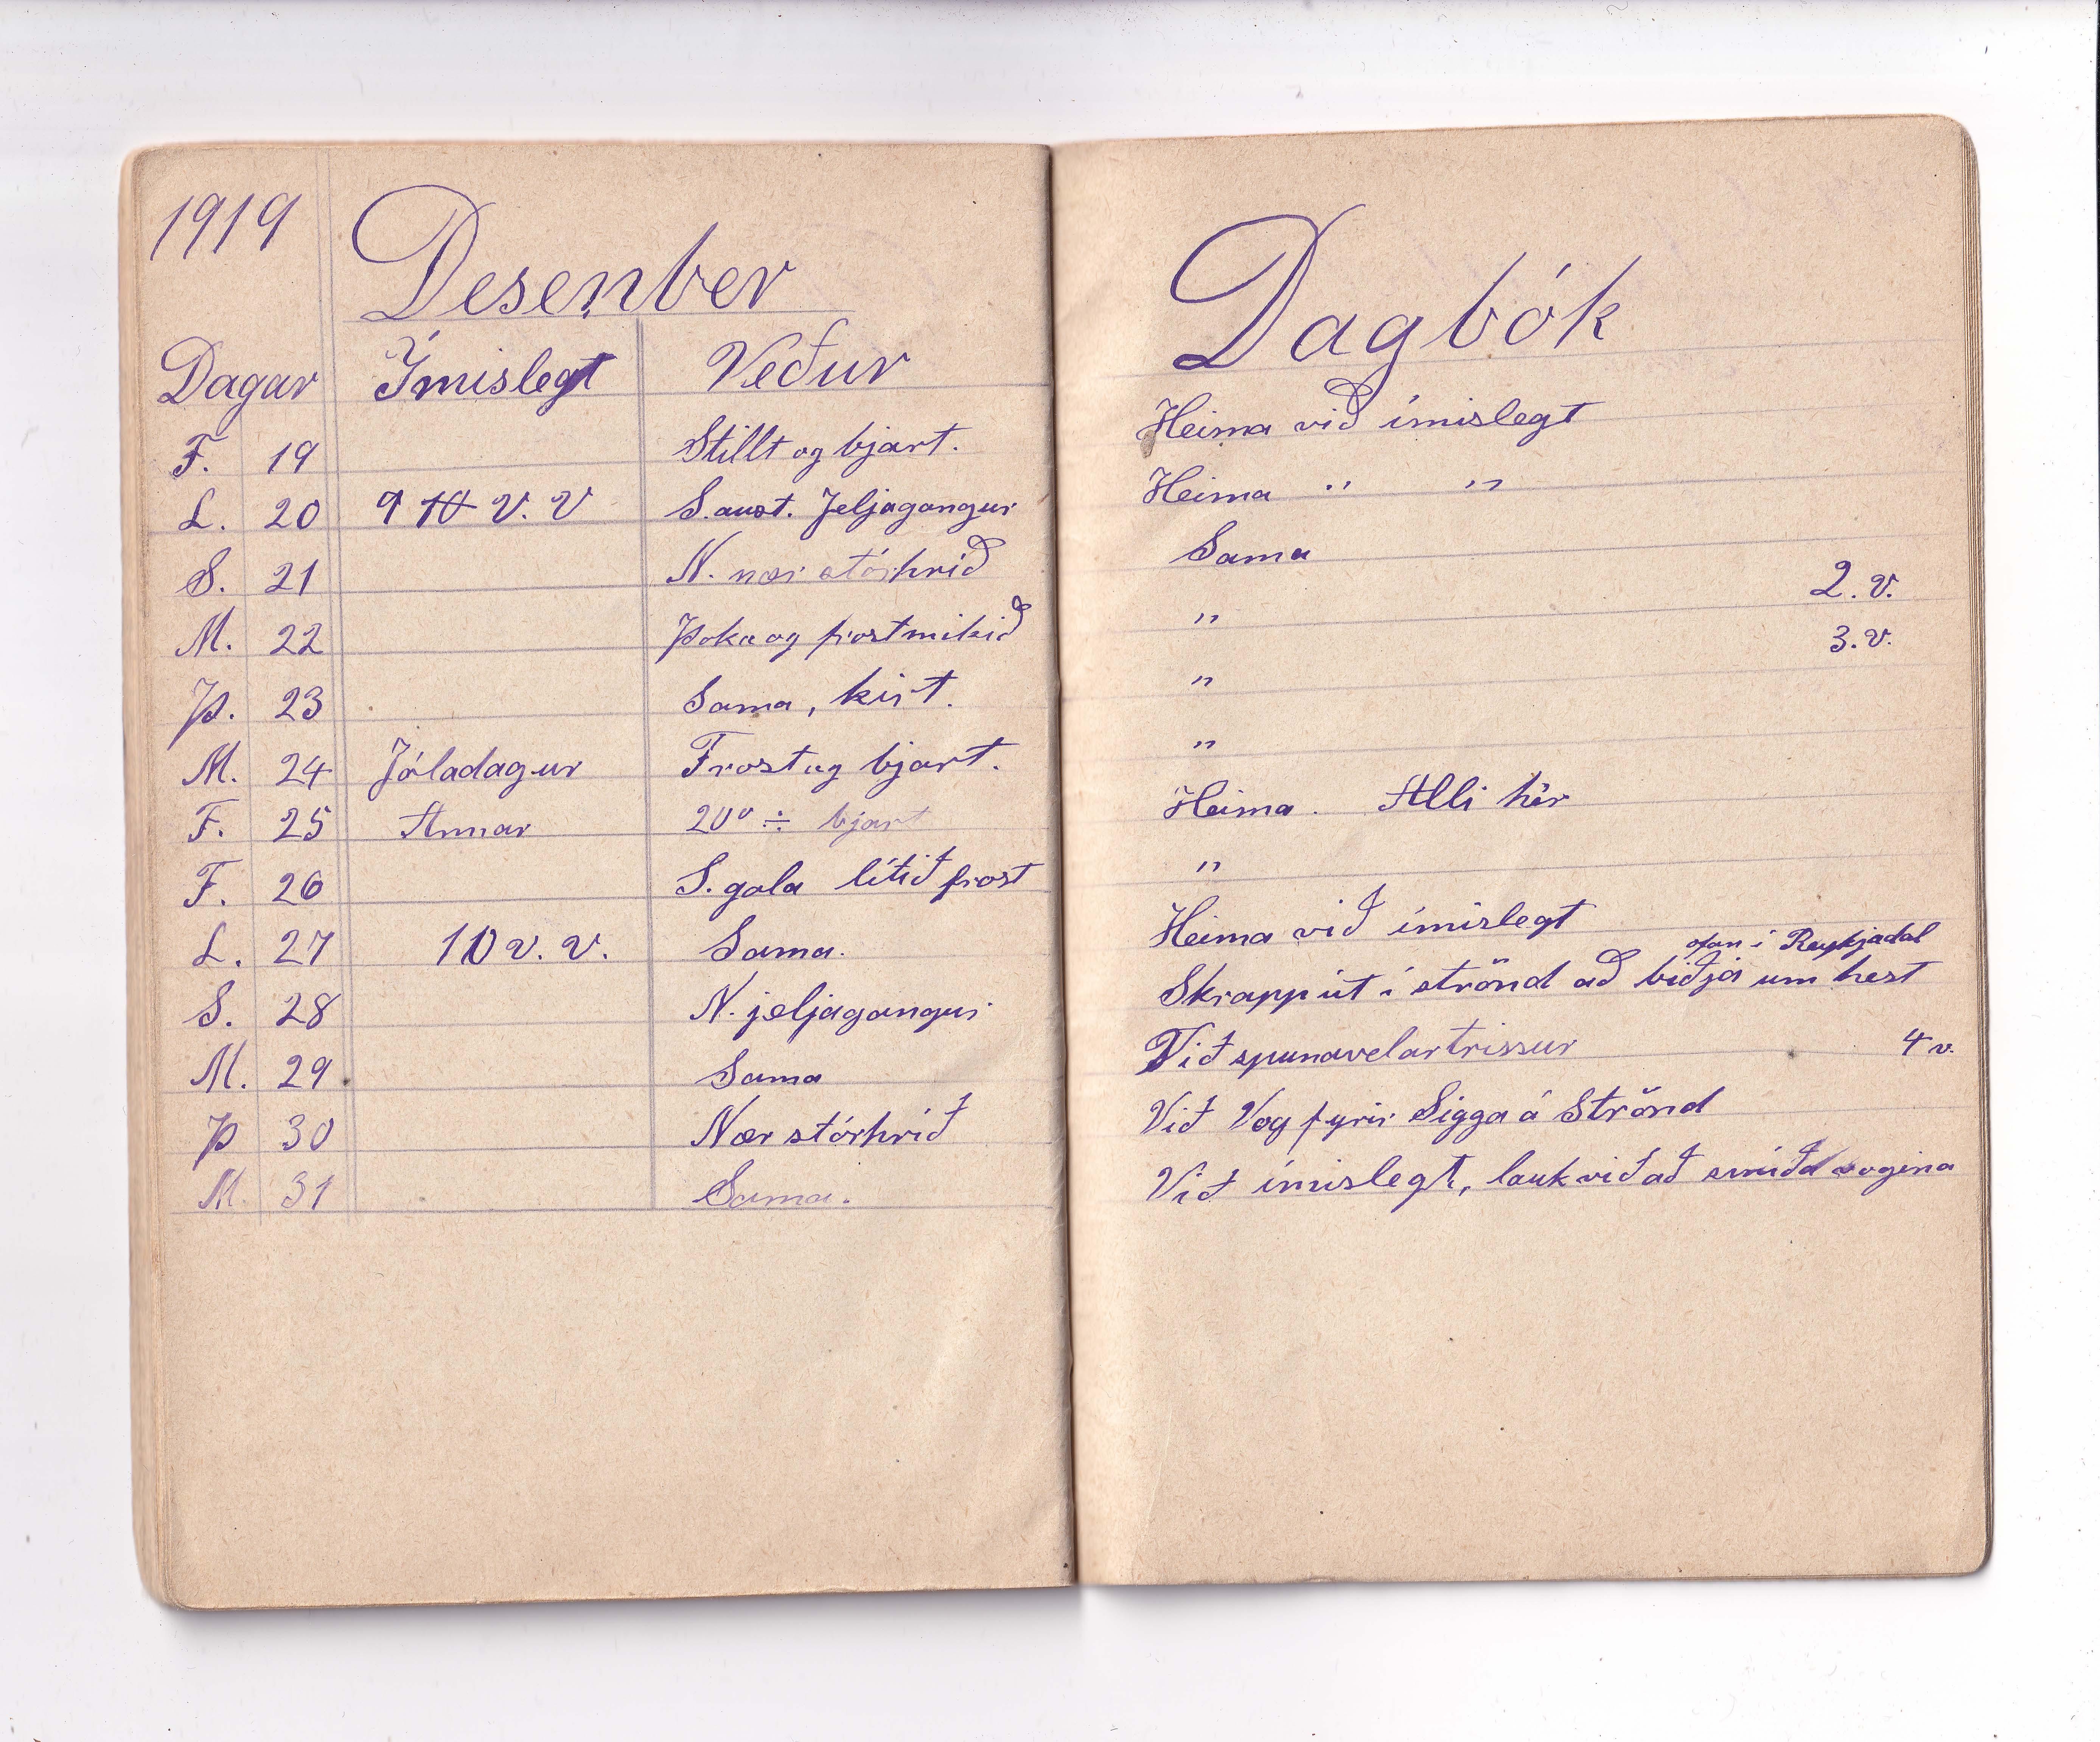 1919
Desenber
Dagar Ímislegt Veður
F. 19 Stillt og bjart.
L. 20 9 10 V. V S. aust. Jeljagangur
S. 21 N. nær stórhríð
M. 22 Þoka og frostmikið
Þ. 23 Sama, kirt.
M. 24 Jóladagur Frost og bjart.
F. 25 Annar 20° ÷ bjart
F. 26 S. gola lítið frost
L. 27 10 v. v. Sama.
S. 28 N. jeljagangur
M. 29 Sama
Þ 30 Nær stórhríð
M. 31 Sama.
Dagbók
Heima við ímislegt
Heima " "
Sama
2. v.
"
3. v.
"
"
Heima. Alli hér
"
Heima við ímislegt
ofan í Reykjadal
Skrapp út í strönd að biðja um hest
Við spunavelartrissur 4 v.
Við Vog fyrir Sigga á Strönd
Við ímislegt, lauk við að smíða vogina